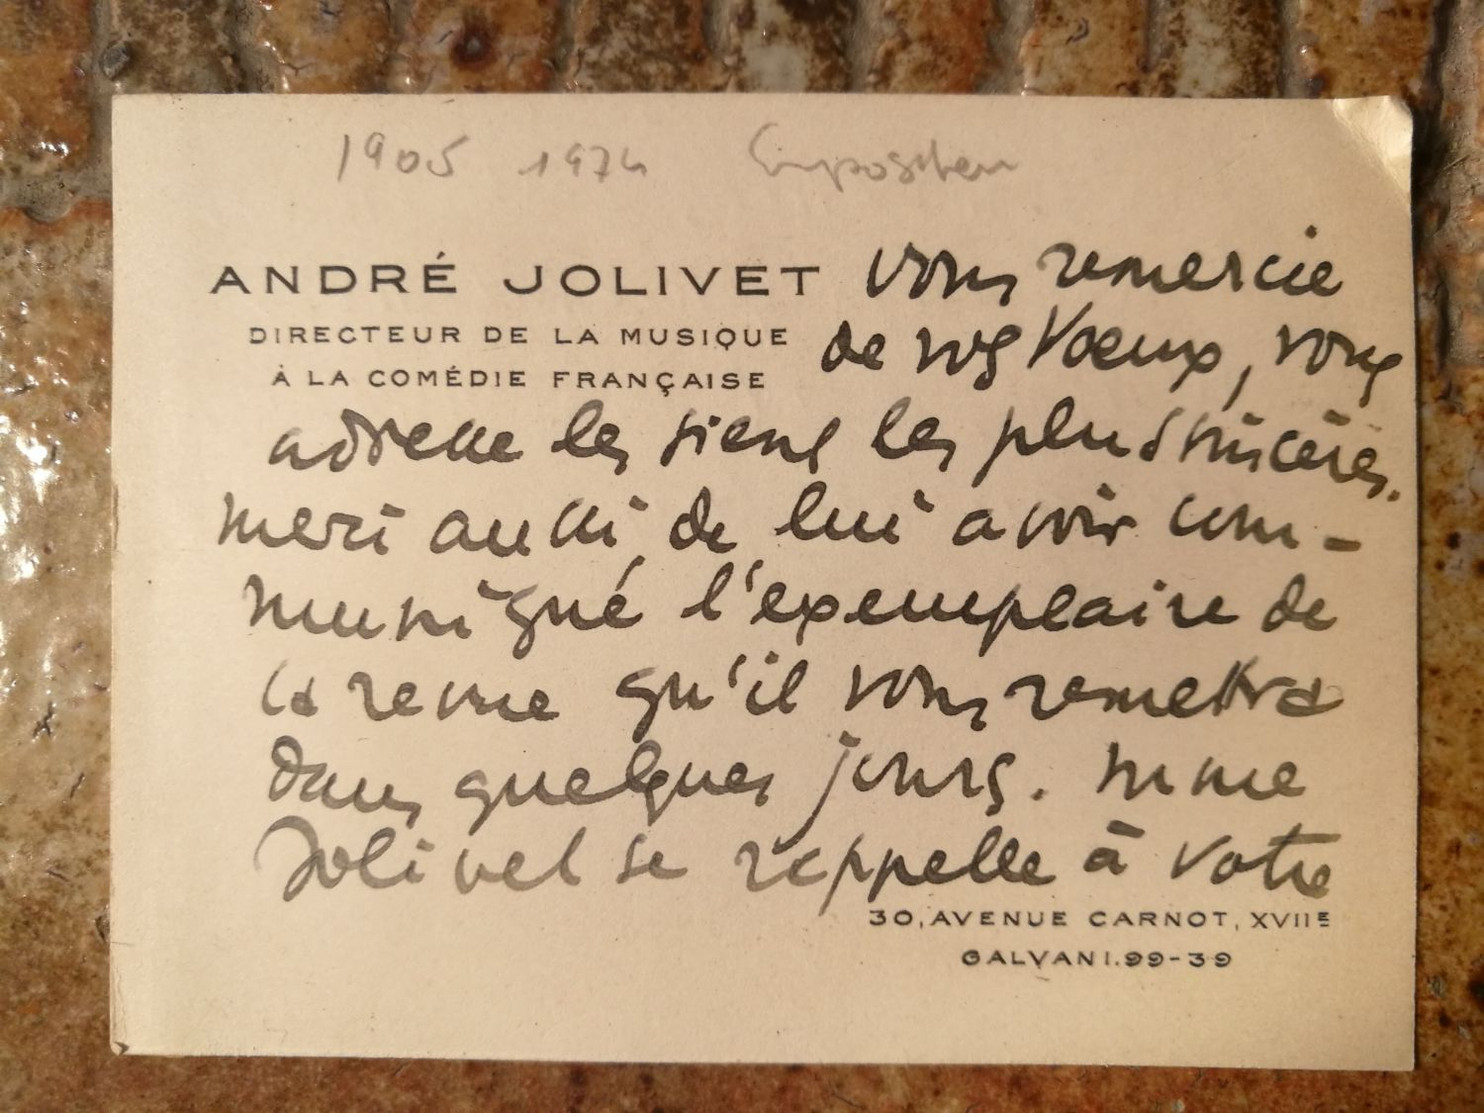 1905 1974 Compositeur
ANDRÉ JOLIVET vous remercie
DIRECTEUR DE LA MUSIQUE de vos Voeux, vous
À LA COMÉDIE FRANÇAISE
adresse les siens les plus sincères.
merci aussi de lui avoir com-
muniqué l'exemplaire de
la revue qu'il vous remettra
dans quelques jours. Mme
Jolivet se rappelle à votre
30, AVENUE CARNOT, XVIIE
GALVANI.99-39